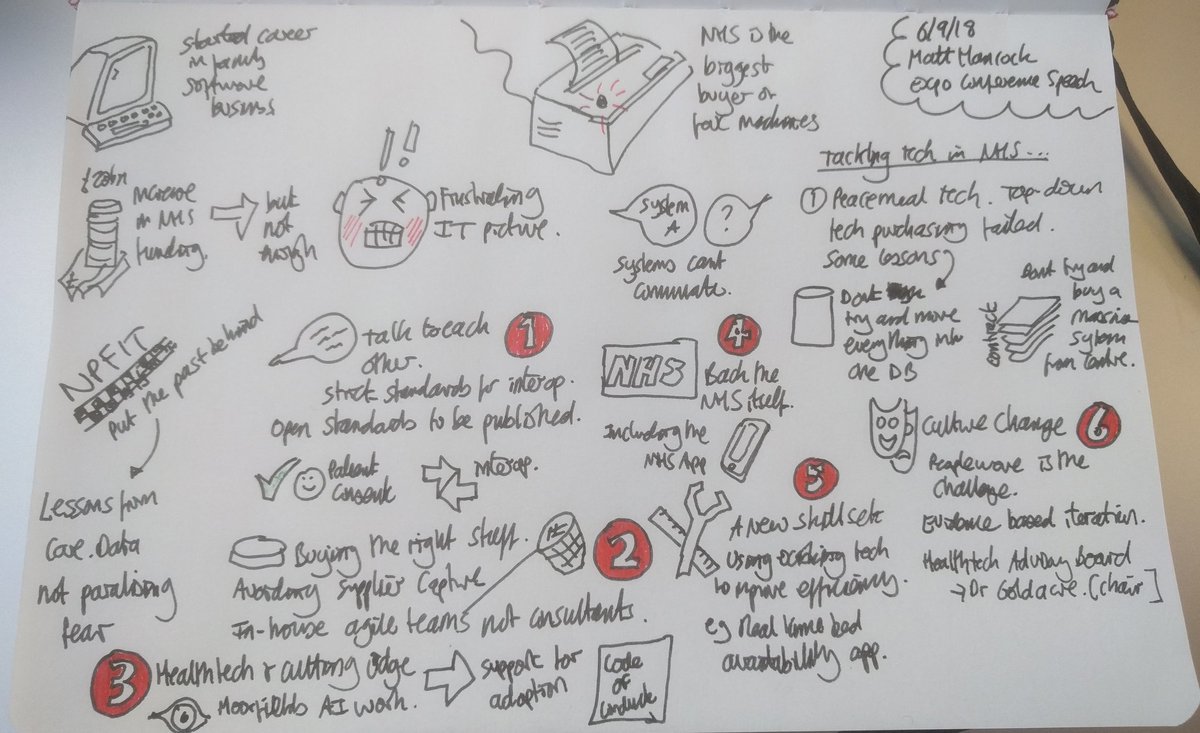 started career
in family
software
business
NHS is the
biggest
buyer of
fax machines
6/9/18
Matt Hancock
Expo Conference Speech
£20bn
increase
in NHS
funding.
but
not
enough
!!
Frustrating
IT picture.
System
A
?
Systems cant
communicate.
Tackling tech in NHS...
1 Peacemeal tech. Top down
tech purchasing failed.
Some lessons
Dont
try and move
everything into
one DB
contract
Dont try and
buy a
massive
system
from centre.
NPFIT
put the past behind
Lessons from
Care.Data
not paralising
fear
1
Talk to each
other.
strict standards for interop.
Open standards to be published.
Patient
Consent
interop.
2
Buying the right stuff.
Avoiding supplier capture
In-house agile teams not consultants.
3
Healthtech & cutting edge
Moorfields AI work.
support for
adoption
Code
of
Conduct
4
NHS
Back the
NHS itself.
Including the
NHS App
5
A new skillset
Using existing tech
to improve efficiency.
eg Real time bed
availability app.
6
Culture Change
Peopleware is the
challenge.
Evidence based iteration.
Healthtech Advisory Board
→ Dr Goldacre. [chair]